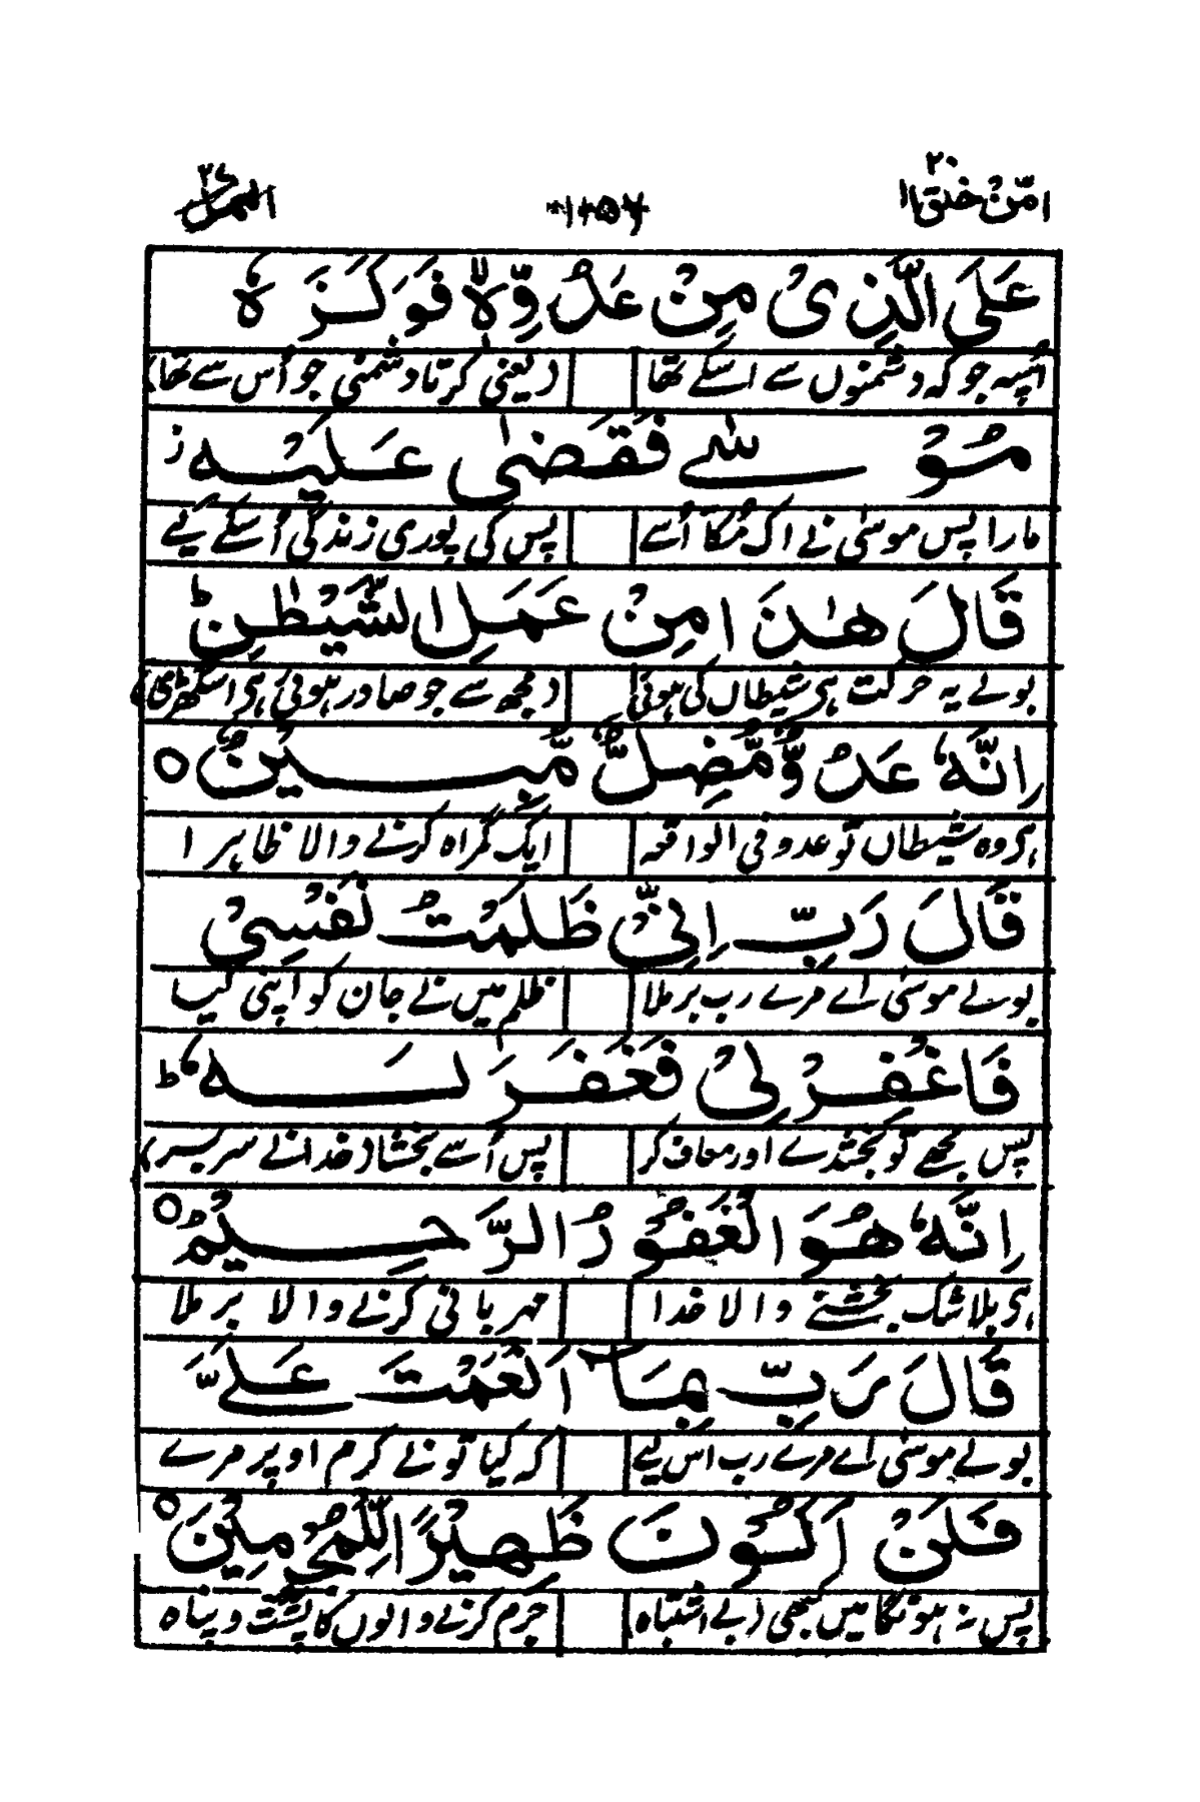 امّن خلق ٢٠
١٠٥٧
النمل ٢٧
عَلَى الَّذِىْ مِنْ عَدُوِّهٖ لا فَوَكَزَهٗ
اُسپہ جو کہ دشمنوں سے اسکے تھا (یعنی کرتا دشمنی جو اُس سے تھا)
مُوْسٰے فَقَضٰى عَلَيْهِ ز
مارا پس موسیٰ نے اک مُکا اُسے پس کی پوری زندگی اُسکے لیے
قَالَ هٰذَا مِنْ عَمَلِ الشَّيْطٰنِ ط
بولے یہ حرکت ہی شیطاں کی ہوئی (مجھ سے جو صادر ہوئی ہی اس گھڑی)
اِنَّهٗ عَدُوٌّ مُّضِلٌّ مُّبِيْنٌ ○
ہی وہ شیطاں تو عدو فی الواقعہ ایک گمراہ کرنے والا ظاہرا
قَالَ رَبِّ اِنِّىْ ظَلَمْتُ نَفْسِىْ
بولے موسیٰ اے مرے رب برملا ظلم میں نے جان کو اپنی کیا
فَاغْفِرْ لِىْ فَغَفَرَ لَهٗ ط
پس مجھے تو بخشدے اور معاف کر پس اُسے بخشا (خدا نے سربسر)
اِنَّهٗ هُوَ الْغَفُوْرُ الرَّحِيْمُ ○
ہی بلاشک بخشنے والا خدا مہربانی کرنے والا برملا
قَالَ رَبِّ بِمَآ اَنْعَمْتَ عَلَىَّ
بولے موسیٰ اے مرے رب اس لیے کہ کیا تو نے کرم اوپر مرے
فَلَنْ اَكُوْنَ ظَهِيْرًا لِّلْمُجْرِمِيْنَ ○
پس نہ ہونگا میں کبھی (بے اشتباہ) جرم کرنے والوں کا پشت و پناہ